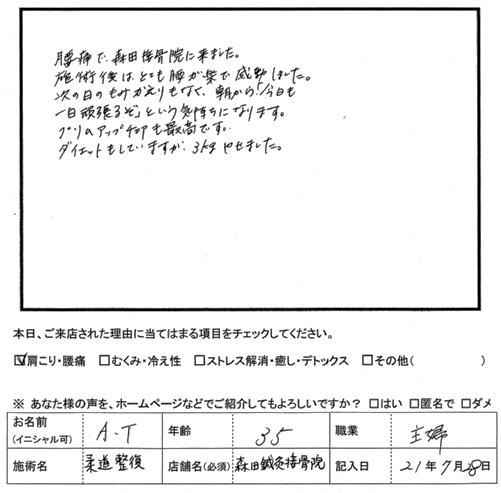 腰痛で、森田接骨院に来ました。
施術後は、とても腰が楽で感動しました。
次の日のもみかえりもなく、朝から「今日も
一日頑張るぞ」という気持ちになります。
ヒップアップも最高です。
ダイエットもしていますが、3kgやせました。
本日、ご来店された理由に当てはまる項目をチェックしてください。
☑肩こり・腰痛 □むくみ・冷え性 □ストレス解消・癒し・デトックス □その他( )
※ あなた様の声を、ホームページなどでご紹介してもよろしいですか? □はい □匿名で □ダメ
お名前(イニシャル可) A.T 年齢 35 職業 主婦
施術名 柔道整復 店舗名(必須) 森田鍼灸接骨院 記入日 21年7月28日